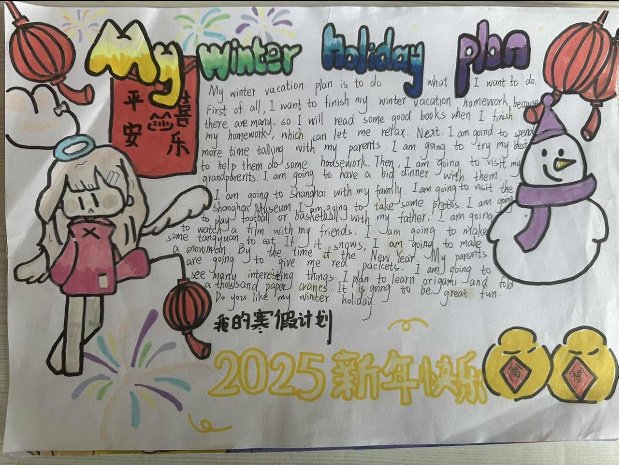 My Winter Holiday Plan
平安
喜乐
My winter vacation plan is to do what I want to do.
First of all, I want to finish my winter vacation homework, because
there are many. so I will read some good books when I finish
my homework, which can let me relax. Next. I am going to spend
more time talking with my parents. I am going to try my best
to help them do some housework. Then, I am going to visit my
grandparents. I am going to have a big dinner with them.
I am going to Shanghai with my family. I am going to visit the
Shanghai Museum. I am going to take some photos. I am going
to play football or basketball with my father. I am going
to watch a film with my friends. I am going to make
some tangyuan to eat. If it snows, I am going to make
a snowman. By the time of the New Year. My parents
are going to give me red packets. I am going to
see many interesting things. I plan to learn origami and fold
a thousand paper cranes. It is going to be great fun
Do you like my winter holiday
我的寒假计划
2025新年快乐
福
福